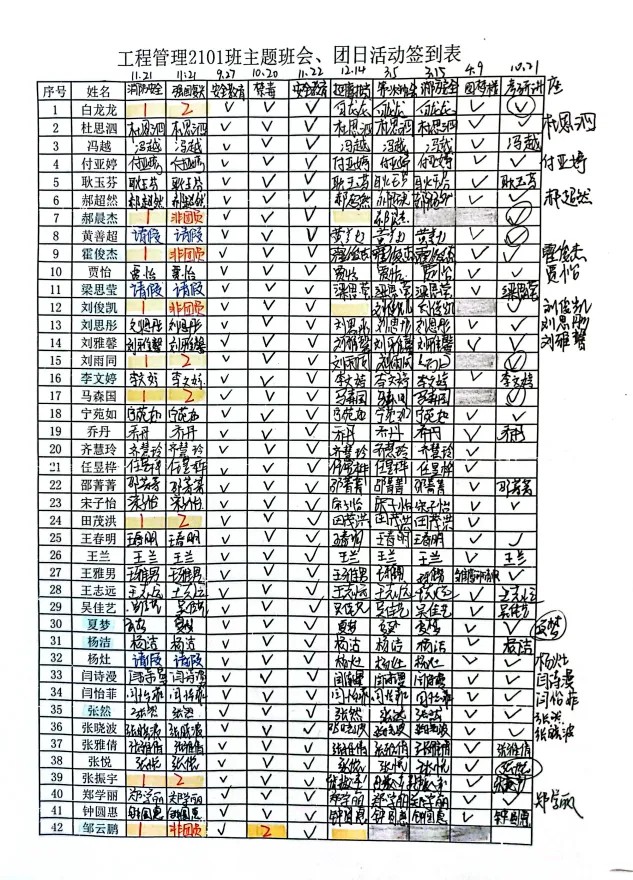 工程管理2101班主题班会、团日活动签到表
11.21 11.21 9.27 10.20 11.22 12.14 3.5 3.15 4.9 10.21
序号 姓名 消防安全 强国复兴 安全教育 禁毒 安全教育 座
1 白龙龙 1 2 ✓ ✓ ✓ ✓ ✓
2 杜思泗 杜思泗 杜思泗 ✓ ✓ ✓ 杜思泗 杜思泗 杜思泗 ✓ ✓ 杜思泗
3 冯越 冯越 冯越 ✓ ✓ ✓ 冯越 冯越 冯越 ✓ 冯越
4 付亚婷 付亚婷 付亚婷 ✓ ✓ ✓ 付亚婷 付亚婷 付亚婷 ✓ ✓ 付亚婷
5 耿玉芬 耿玉芬 耿玉芬 ✓ ✓ ✓ 耿玉芬 耿玉芬 耿玉芬 ✓ 耿玉芬
6 郝超然 郝超然 郝超然 ✓ ✓ ✓ 郝超然 郝超然 郝超然 ✓ ✓ 郝超然
7 郝晨杰 1 非团员 ✓ ✓ ✓ ✓
8 黄善超 请假 请假 ✓ ✓ ✓ ✓ ✓
9 霍俊杰 1 非团员 ✓ ✓ ✓ 霍俊杰 ✓ ✓ 霍俊杰
10 贾怡 贾怡 贾怡 ✓ ✓ ✓ 贾怡 贾怡 贾怡 ✓ ✓ 贾怡
11 梁思莹 请假 请假 ✓ ✓ ✓ 梁思莹 梁思莹 梁思莹 ✓ 梁思莹
12 刘俊凯 1 非团员 ✓ ✓ ✓ 刘俊凯 刘俊凯 ✓ 刘俊凯
13 刘思彤 刘思彤 刘思彤 ✓ ✓ ✓ 刘思彤 刘思彤 刘思彤 ✓ ✓ 刘思彤
14 刘雅馨 刘雅馨 刘雅馨 ✓ ✓ ✓ 刘雅馨 刘雅馨 刘雅馨 ✓ ✓ 刘雅馨
15 刘雨同 1 2 ✓ ✓ ✓ 刘雨同 刘雨同 ✓
16 李文婷 李文婷 李文婷 ✓ ✓ ✓ 李文婷 李文婷 李文婷 ✓ 李文婷
17 马森国 1 2 ✓ ✓ ✓ 马森国 马森国 马森国 ✓
18 宁苑如 宁苑如 宁苑如 ✓ ✓ ✓ 宁苑如 宁苑如 宁苑如 ✓ ✓
19 乔丹 乔丹 乔丹 ✓ ✓ ✓ 乔丹 乔丹 乔丹 ✓ 乔丹
20 齐慧玲 齐慧玲 齐慧玲 ✓ ✓ ✓ 齐慧玲 齐慧玲 齐慧玲 ✓
21 任昱桦 任昱桦 任昱桦 ✓ ✓ ✓ 任昱桦 任昱桦 任昱桦 ✓
22 邵菁菁 邵菁菁 邵菁菁 ✓ ✓ ✓ 邵菁菁 邵菁菁 邵菁菁 ✓ 邵菁菁
23 宋子怡 宋子怡 宋子怡 ✓ ✓ ✓ 宋子怡 宋子怡 宋子怡 ✓ ✓
24 田茂洪 1 2 ✓ ✓ ✓ 田茂洪 田茂洪 田茂洪 ✓
25 王春明 王春明 王春明 ✓ ✓ ✓ 王春明 王春明 王春明 ✓ ✓
26 王兰 王兰 王兰 ✓ ✓ ✓ 王兰 王兰 王兰 ✓ 王兰
27 王雅男 王雅男 王雅男 ✓ ✓ ✓ 王雅男 ✓
28 王志远 王志远 王志远 ✓ ✓ ✓ 王志远 王志远 王志远 ✓ 王志远
29 吴佳艺 吴佳艺 ✓ ✓ ✓ 吴佳艺 吴佳艺 ✓ 吴佳艺
30 夏梦 夏梦 夏梦 ✓ ✓ ✓ 夏梦 夏梦 夏梦 ✓ ✓ 夏梦
31 杨洁 杨洁 杨洁 ✓ ✓ ✓ 杨洁 杨洁 杨洁 ✓ 杨洁
32 杨灶 请假 请假 ✓ ✓ ✓ 杨灶 杨灶 杨灶 ✓ ✓ 杨灶
33 闫诗漫 闫诗漫 闫诗漫 ✓ ✓ ✓ 闫诗漫 ✓ ✓ 闫诗漫
34 闫怡菲 闫怡菲 闫怡菲 ✓ ✓ ✓ 闫怡菲 闫怡菲 闫怡菲 ✓ ✓ 闫怡菲
35 张然 张然 张然 ✓ ✓ ✓ 张然 张然 张然 ✓ ✓ 张然
36 张晓波 张晓波 张晓波 ✓ ✓ ✓ 张晓波 张晓波 张晓波 ✓ ✓ 张晓波
37 张雅倩 张雅倩 张雅倩 ✓ ✓ ✓ 张雅倩 张雅倩 张雅倩 ✓ 张雅倩
38 张悦 张悦 张悦 ✓ ✓ ✓ 张悦 张悦 张悦 ✓ 张悦
39 张振宇 1 2 ✓ ✓ ✓ ✓
40 郑学丽 郑学丽 郑学丽 ✓ ✓ ✓ 郑学丽 郑学丽 郑学丽 ✓ ✓ 郑学丽
41 钟圆惠 钟圆惠 钟圆惠 ✓ ✓ ✓ 钟圆惠 钟圆惠 钟圆惠 ✓ 钟圆惠
42 邹云鹏 1 非团员 2 ✓